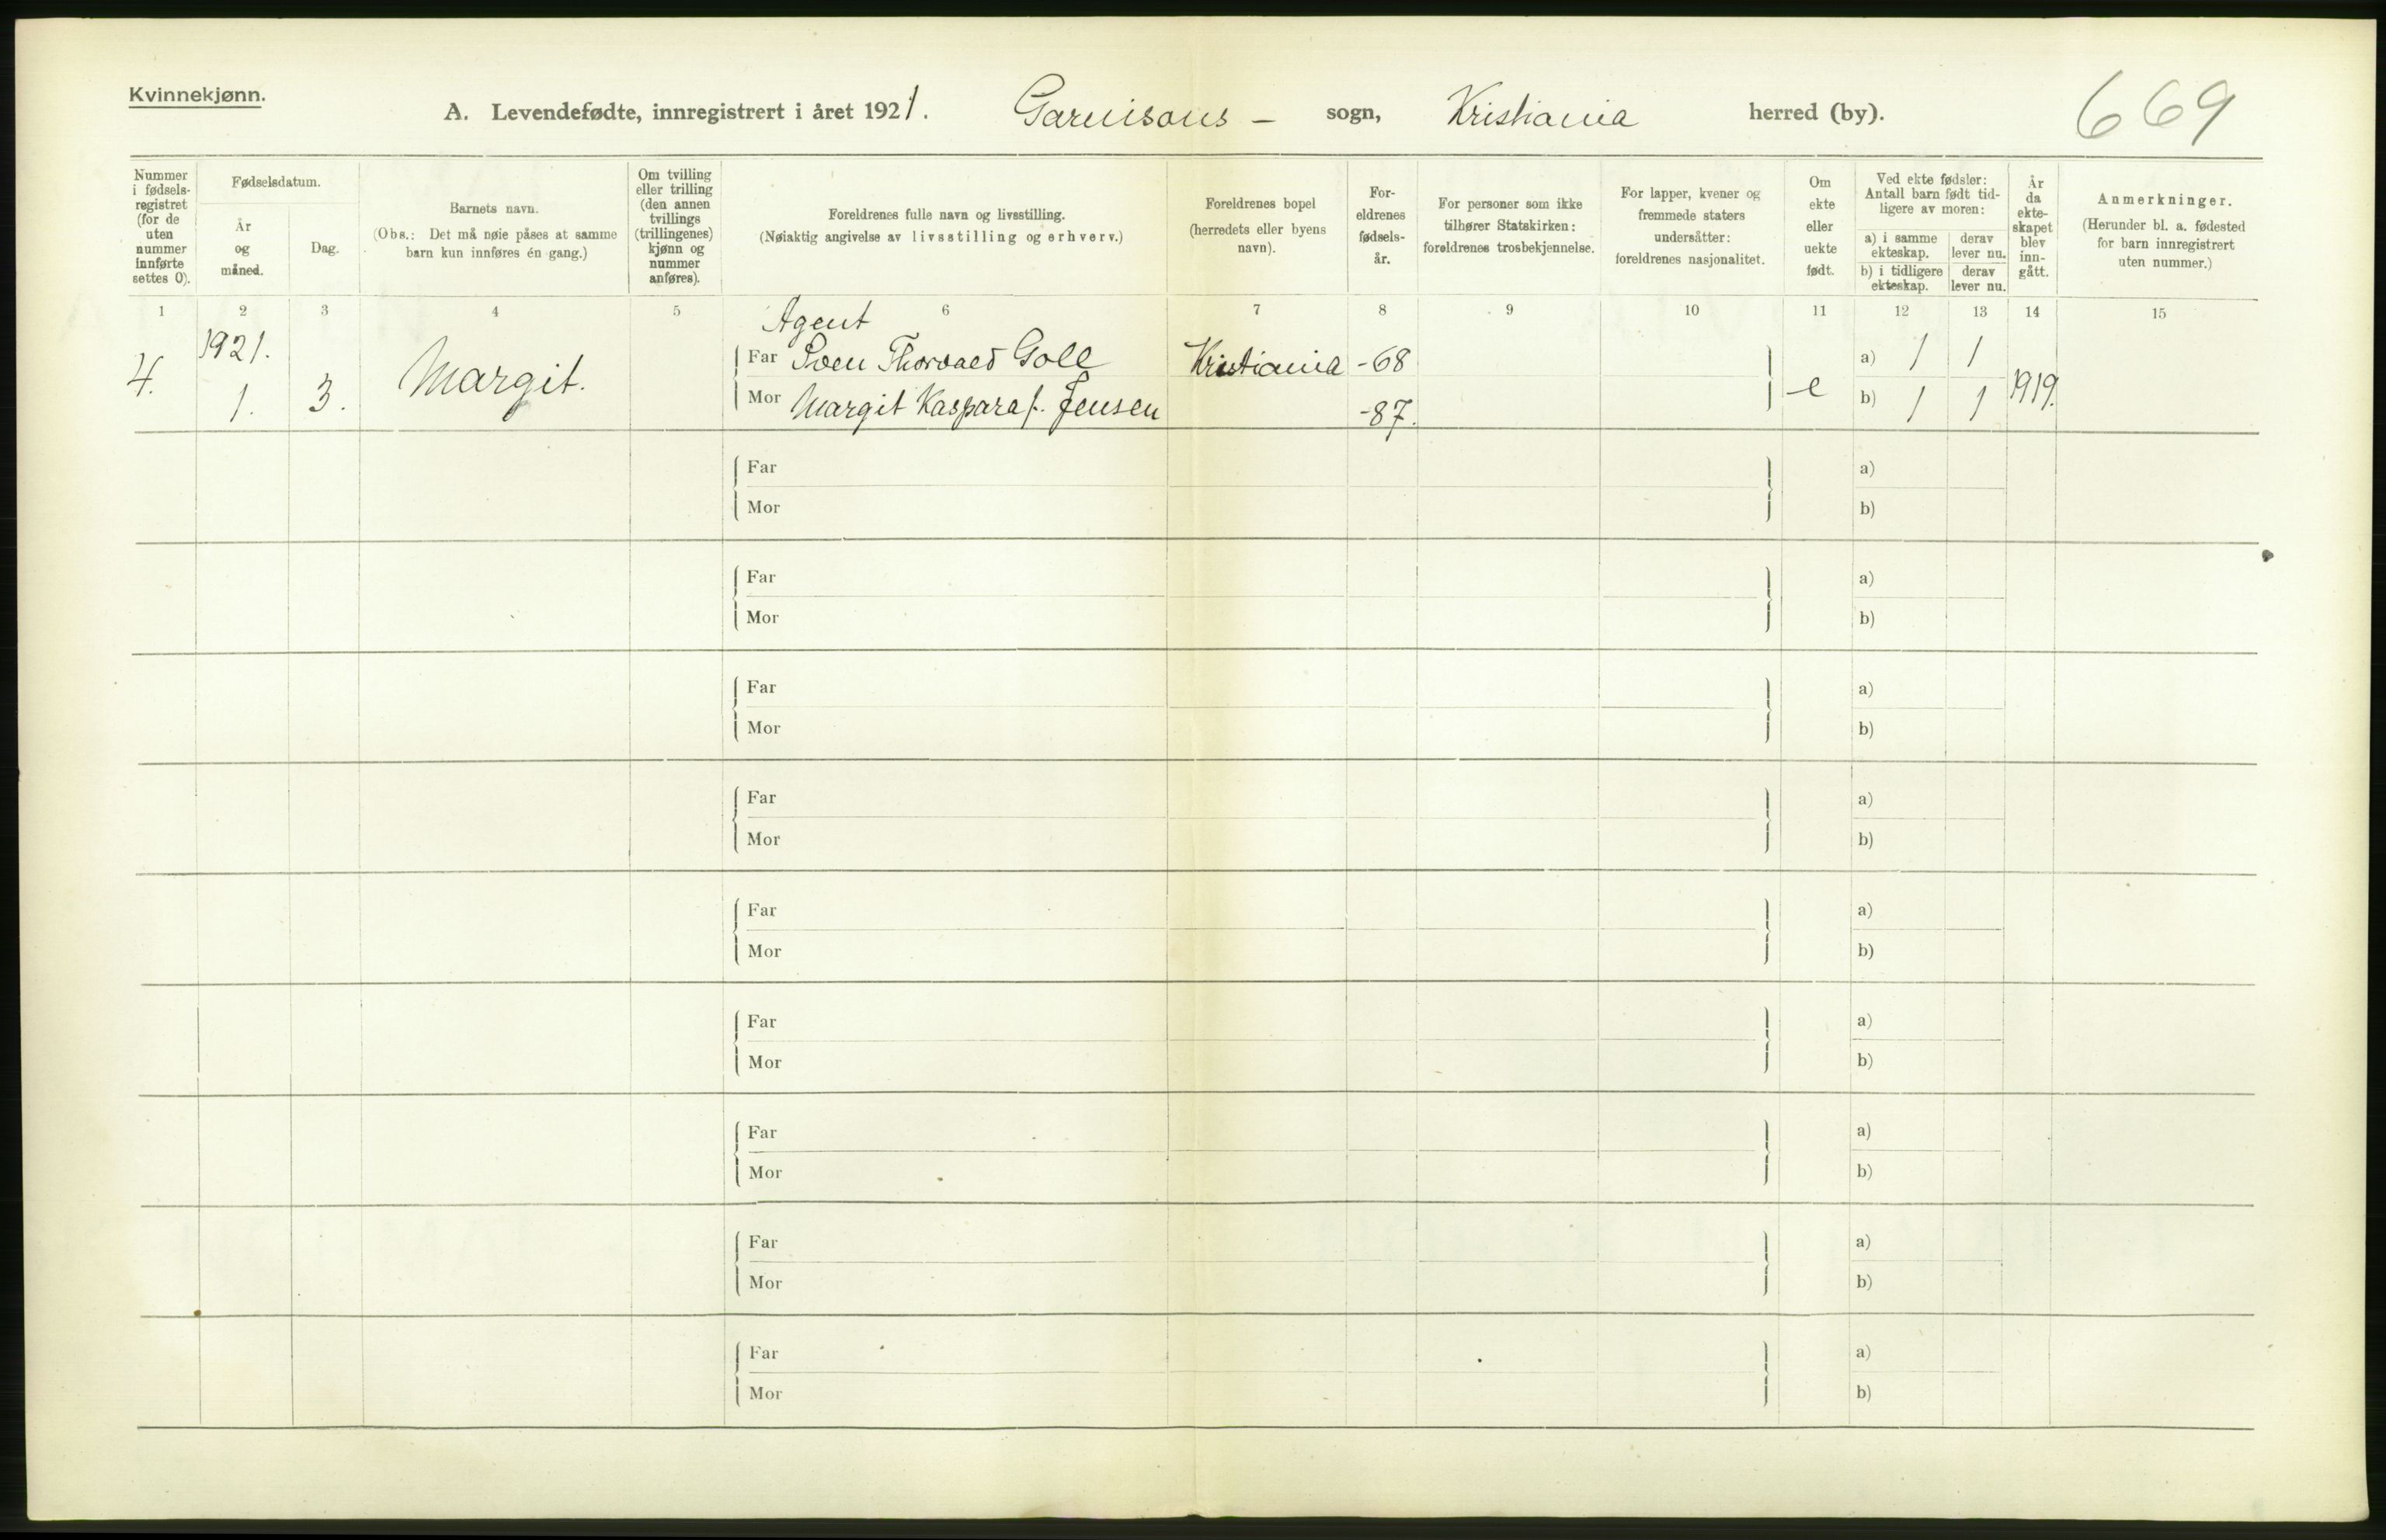 Kvinnekjønn.
A. Levendefødte, innregistrert i året 1921. Garnisons - sogn, Kristiania herred (by). 669
Nummer i fødsels- registret (for de uten nummer innførte settes 0).
Fødselsdatum.
År og måned.
Dag.
Barnets navn.
(Obs.: Det må nøie påses at samme barn kun innføres én gang.)
Om tvilling eller trilling (den annen tvillings (trillingenes) kjønn og nummer anføres).
Foreldrenes fulle navn og livsstilling.
(Nøiaktig angivelse av livsstilling og erhverv.)
Foreldrenes bopel
(herredets eller byens navn).
For- eldrenes fødsels- år.
For personer som ikke tilhører Statskirken: foreldrenes trosbekjennelse.
For lapper, kvener og fremmede staters undersåtter: foreldrenes nasjonalitet.
Om ekte eller uekte født.
Ved ekte fødsler: Antall barn født tid- ligere av moren:
a) i samme ekteskap.
derav lever nu.
b) i tidligere ekteskap.
derav lever nu.
År da ekte- skapet blev inn- gått.
Anmerkninger.
(Herunder bl. a. fødested for barn innregistrert uten nummer.)
1 2 3 4 5 6 7 8 9 10 11 12 13 14 15
Agent
1921.
Far Sven Thorvald Goll Kristiania -68 a) 1 1
4. 1. 3. Margit. e 1919.
Mor Margit Kaspara f. Jensen -87. b) 1 1
Far a)
Mor b)
Far a)
Mor b)
Far a)
Mor b)
Far a)
Mor b)
Far a)
Mor b)
Far a)
Mor b)
Far a)
Mor b)
Far a)
Mor b)
Far a)
Mor b)